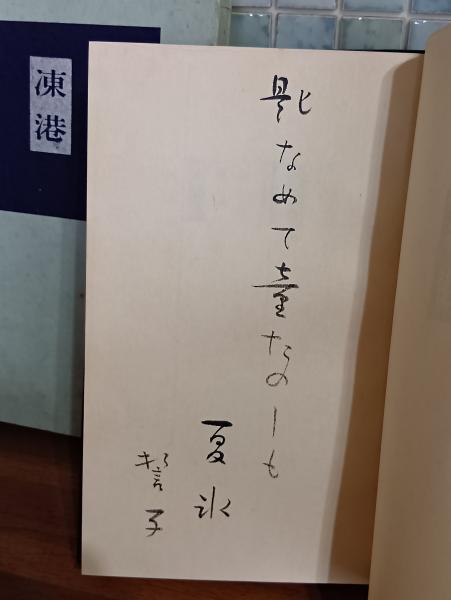 匙なめて童たのしも
夏氷
誓子
凍港